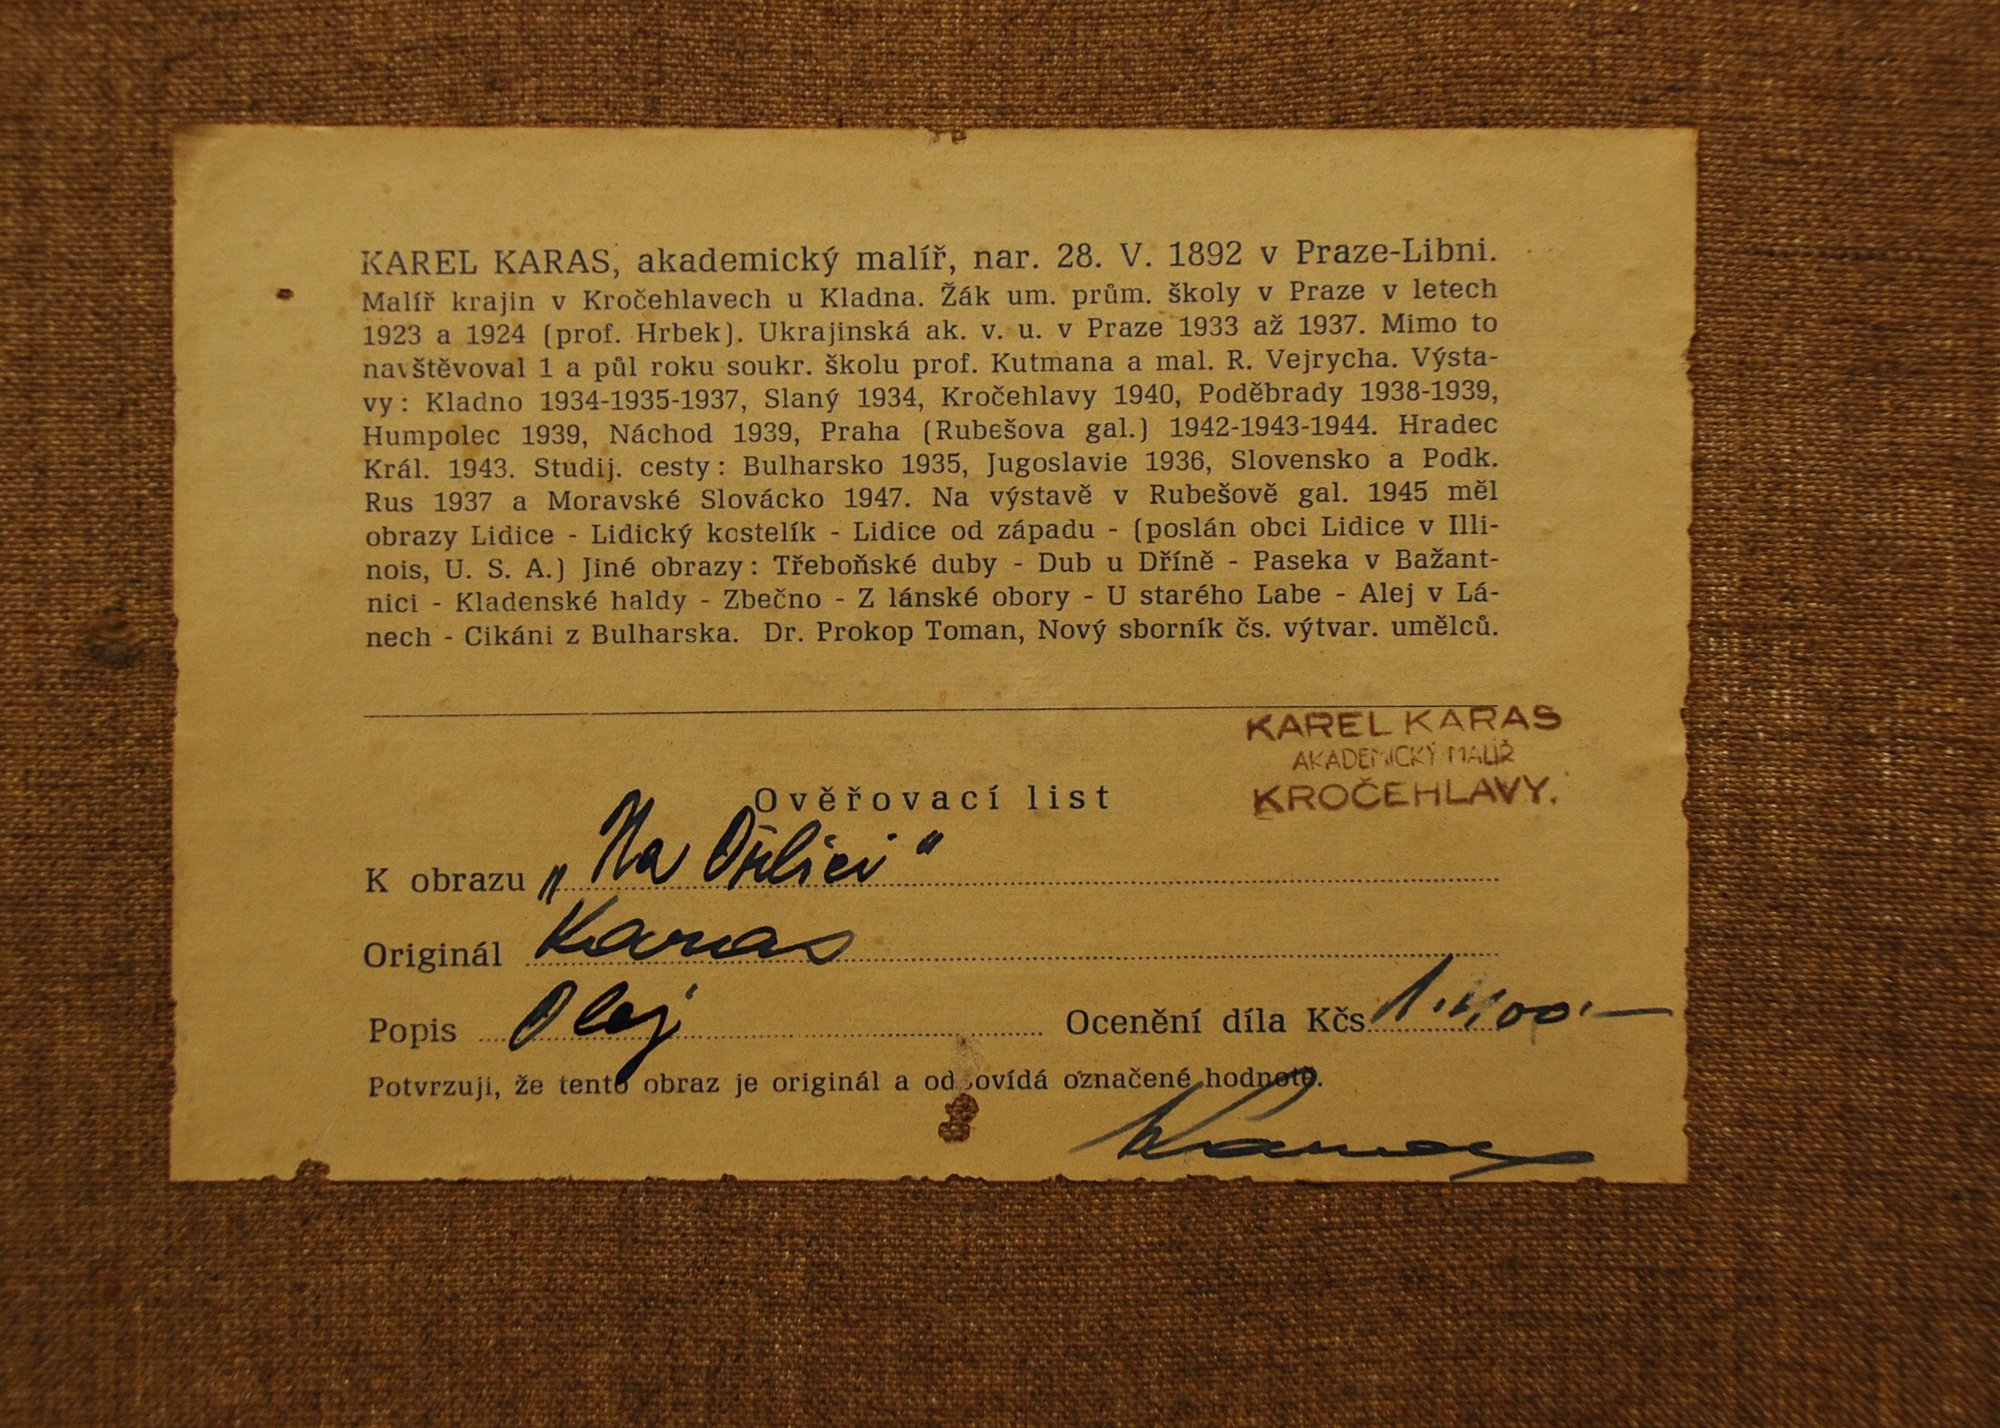 KAREL KARAS, akademický malíř, nar. 28. V. 1892 v Praze-Libni.
Malíř krajin v Kročehlavech u Kladna. Žák um. prům. školy v Praze v letech
1923 a 1924 (prof. Hrbek). Ukrajinská ak. v. u. v Praze 1933 až 1937. Mimo to
navštěvoval 1 a půl roku soukr. školu prof. Kutmana a mal. R. Vejrycha. Výsta-
vy: Kladno 1934-1935-1937, Slaný 1934, Kročehlavy 1940, Poděbrady 1938-1939,
Humpolec 1939, Náchod 1939, Praha (Rubešova gal.) 1942-1943-1944. Hradec
Král. 1943. Studij. cesty: Bulharsko 1935, Jugoslavie 1936, Slovensko a Podk.
Rus 1937 a Moravské Slovácko 1947. Na výstavě v Rubešově gal. 1945 měl
obrazy Lidice - Lidický kostelík - Lidice od západu - (poslán obci Lidice v Illi-
nois, U. S. A.) Jiné obrazy: Třeboňské duby - Dub u Dříně - Paseka v Bažant-
nici - Kladenské haldy - Zbečno - Z lánské obory - U starého Labe - Alej v Lá-
nech - Cikáni z Bulharska. Dr. Prokop Toman, Nový sborník čs. výtvar. umělců.
KAREL KARAS
AKADEMICKÝ MALÍŘ
KROČEHLAVY.
Ověřovací list
K obrazu „Na Orlici"
Originál Karas
Popis Olej Ocenění díla Kčs
Potvrzuji, že tento obraz je originál a odpovídá označené hodnotě.
Karas